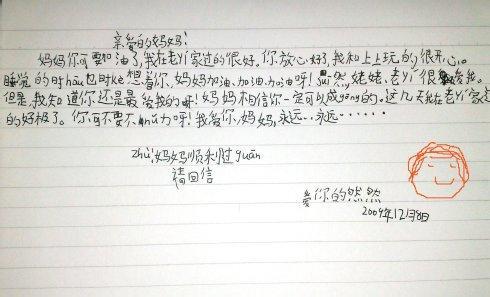 亲爱的妈妈!
妈妈你可要加油了,我在老yí家过的很好,你放心好了,我和上上玩的很开心。
睡觉的时hòu也时kè想着你,妈妈加油、加油、加油呀!虽然姥姥、老yí很爱我。
但是,我知道你还是最爱我的呀!妈妈相信你一定可以成gōng的。这几天我在老yí家过
的好极了。你可不要不nǔ力呀!我爱你,妈妈,永远、永远……
zhù妈妈顺利过guān
请回信
爱你的然然
2009年12月8日